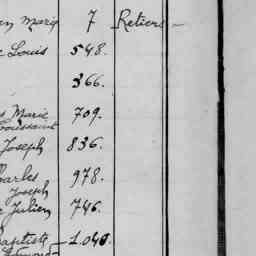 Marie 7 Retiers —
Louis 548.
366.
Marie 709.
Toussaint
Joseph 836.
Charles 978.
Joseph
Julien 746.
Baptiste — 1.040.